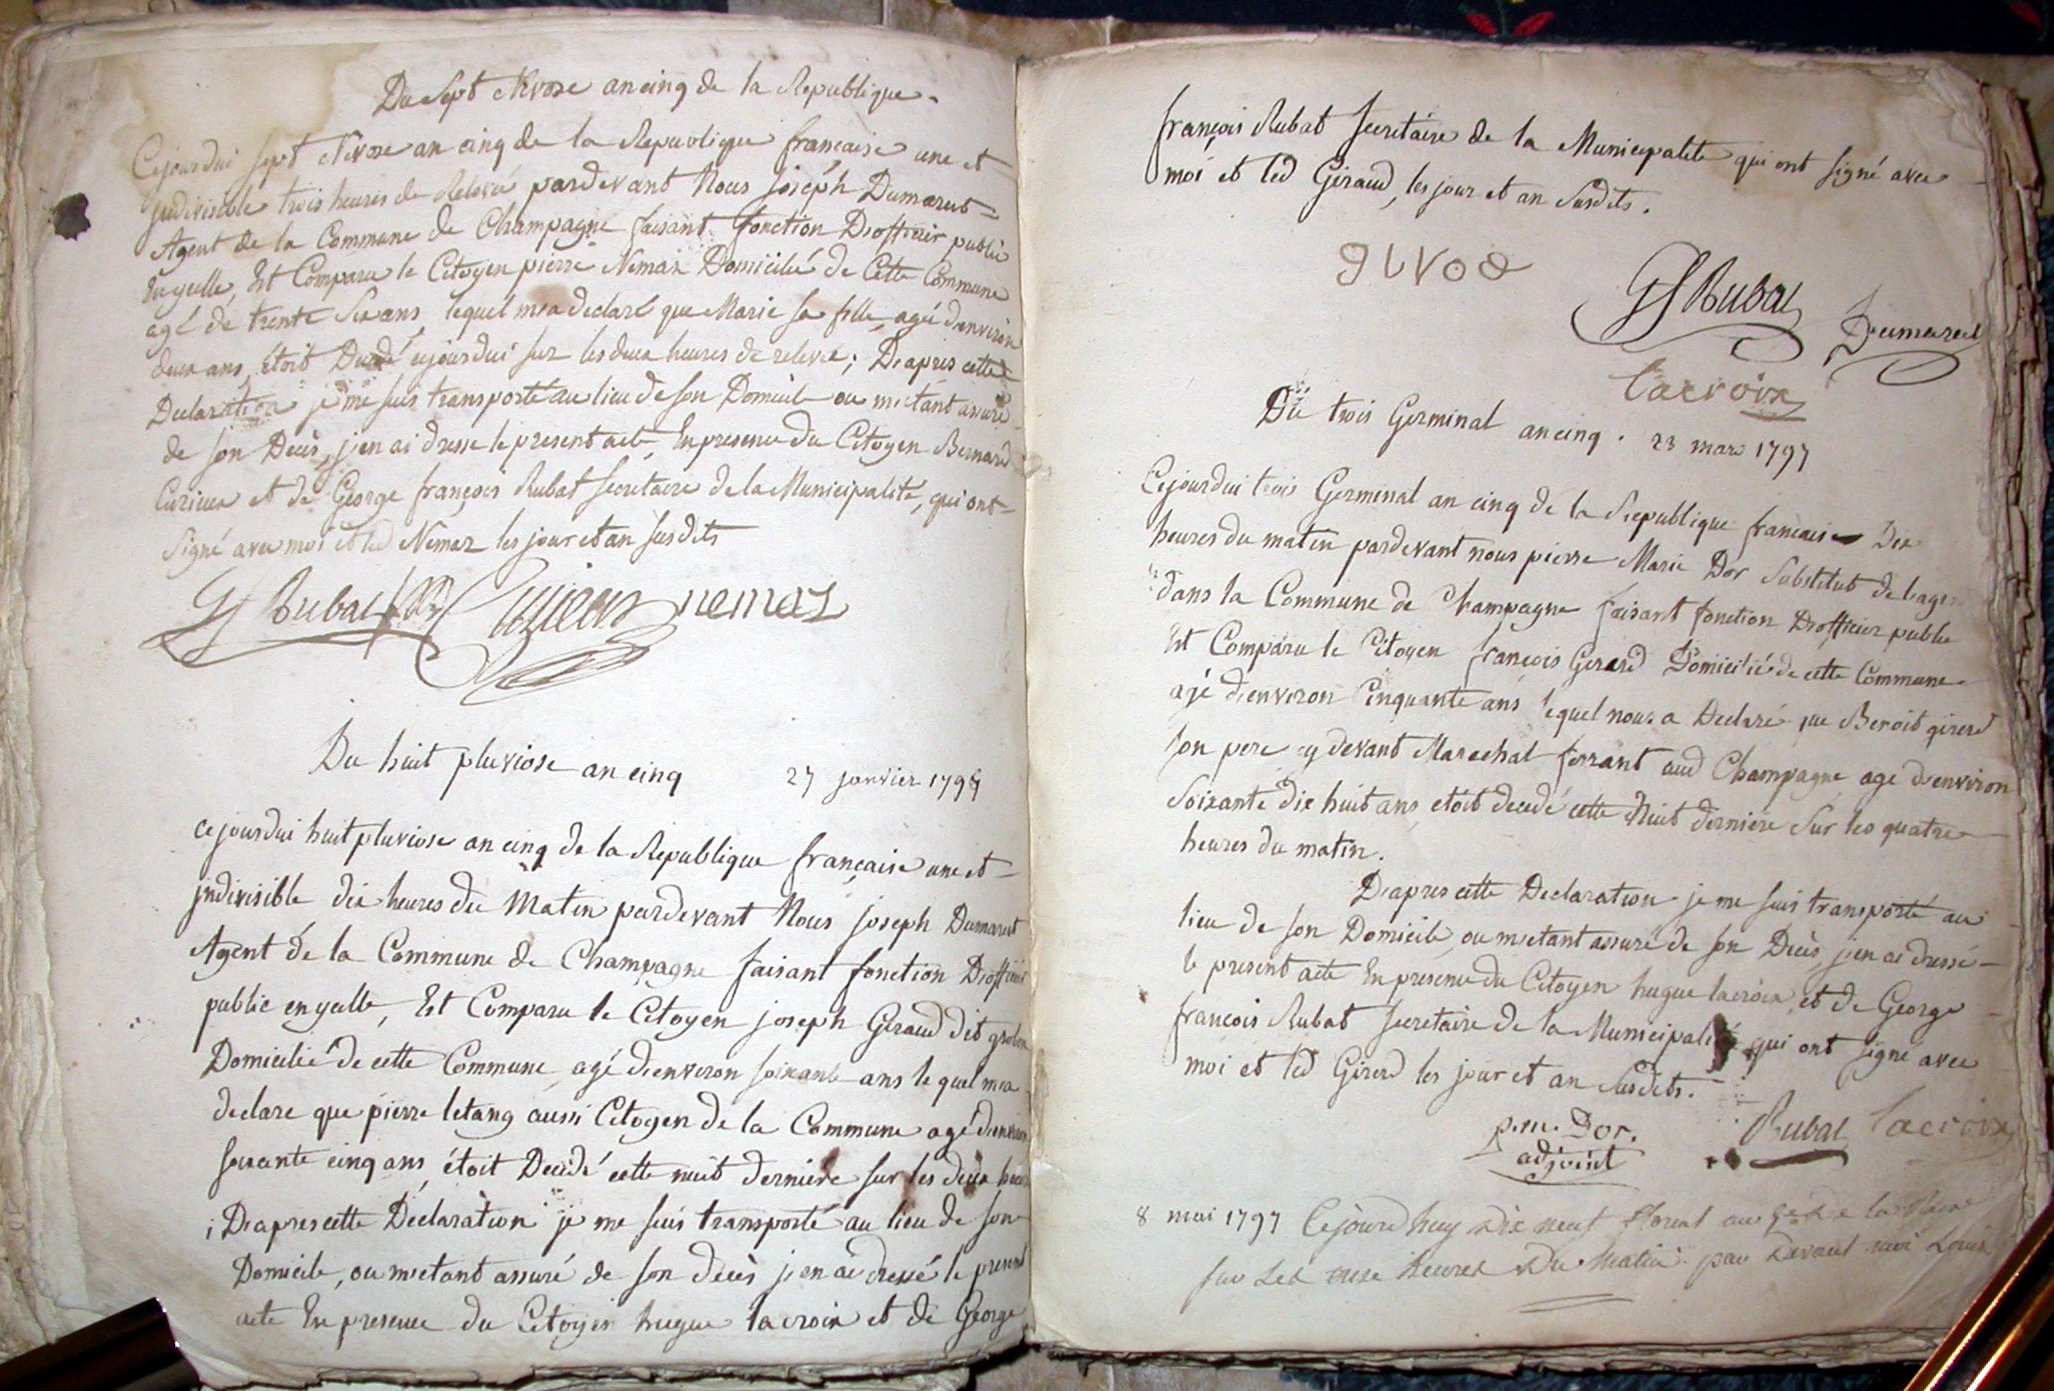 Du Sept Nivose an cinq de la Republique.
Cejourdui sept Nivose an cinq de la Republique francaise une et
jndivisible trois heures de Relevée pardevant Nous joseph Dumarest
Agent de la Commune de Champagne faisant fonction Dofficier public
En ycelle, Est Comparu le Citoyen pierre Nemoz Domicilié de Cette Commune
agé de trente Six ans, lequel m'a declaré que Marie sa fille agé denviron
deux ans, étoit Decedé cejourdui sur les deux heures de relevée ; Diapres cette
Declaration je me suis transporté au lieu de son Domicile ou m'etant assuré
de son Decès, j'en ai dressé le present acte, En presence du Citoyen Bernard
Curieux et de George françois Rubat secretaire de la Municipalité, qui ont
Signé avec moi et led Nemoz les jour et an susdits
Gf Rubat Curieux nemoz
Du huit pluviose an cinq 27 janvier 1797
cejourdui huit pluviose an cinq de la Republique française une et
jndivisible dix heures du Matin pardevant Nous joseph Dumarest
Agent de la Commune de Champagne faisant fonction Dofficier
public en ycelle, Est Comparu le Citoyen joseph Geraud dit
Domicilié de cette Commune agé dienviron soixante ans le quel m'a
declare que pierre letang aussi Citoyen de la Commune agé dienviron
soixante cinq ans, étoit Decedé cette nuit derniere sur les deux heures
; Diapres cette Déclaration je me suis transporté au lieu de son
Domicile, ou m'etant assuré de son decès j'en ai dressé le present
acte En presence du Citoyen hugue lacroix et de George
françois Rubat Secretaire de la Municipalité qui ont signé avec
moi et led Geraud, les jour et an Susdits.
givod
Gf Rubat
Dumarest
lacroix
Du trois Germinal an cinq. 23 mars 1797
Cejourdui trois Germinal an cinq de la Republique francaise Dix
heures du matin pardevant nous pierre Marie Dor Substitut de lagent
dans la Commune de Champagne faisant fonction Dofficier public
Est Comparu le Citoyen françois Gerard Domicilié de cette Commune
agé dienviron Cinquante ans lequel nous a Declaré que Benoit girerd
son pere cy devant Marechal ferrant aud Champagne agé dienviron
Soixante dix huit ans, etoit decedé cette Nuit derniere Sur les quatre
heures du matin.
Diapres cette Declaration je me suis transporté au
lieu de son Domicile, ou m'etant assuré de son Decès, j'en ai dressé
le present acte En presence du Citoyen hugue lacroix, et de George
françois Rubat secretaire de la Municipalité qui ont signé avec
moi et led Girerd les jour et an Susdits.
p.m. Dor. Rubat lacroix
adjoint
8 mai 1797 Cejourd'huy dix neuf floreal au 5e de la
sur les onze heures du matin par devant moi Louis